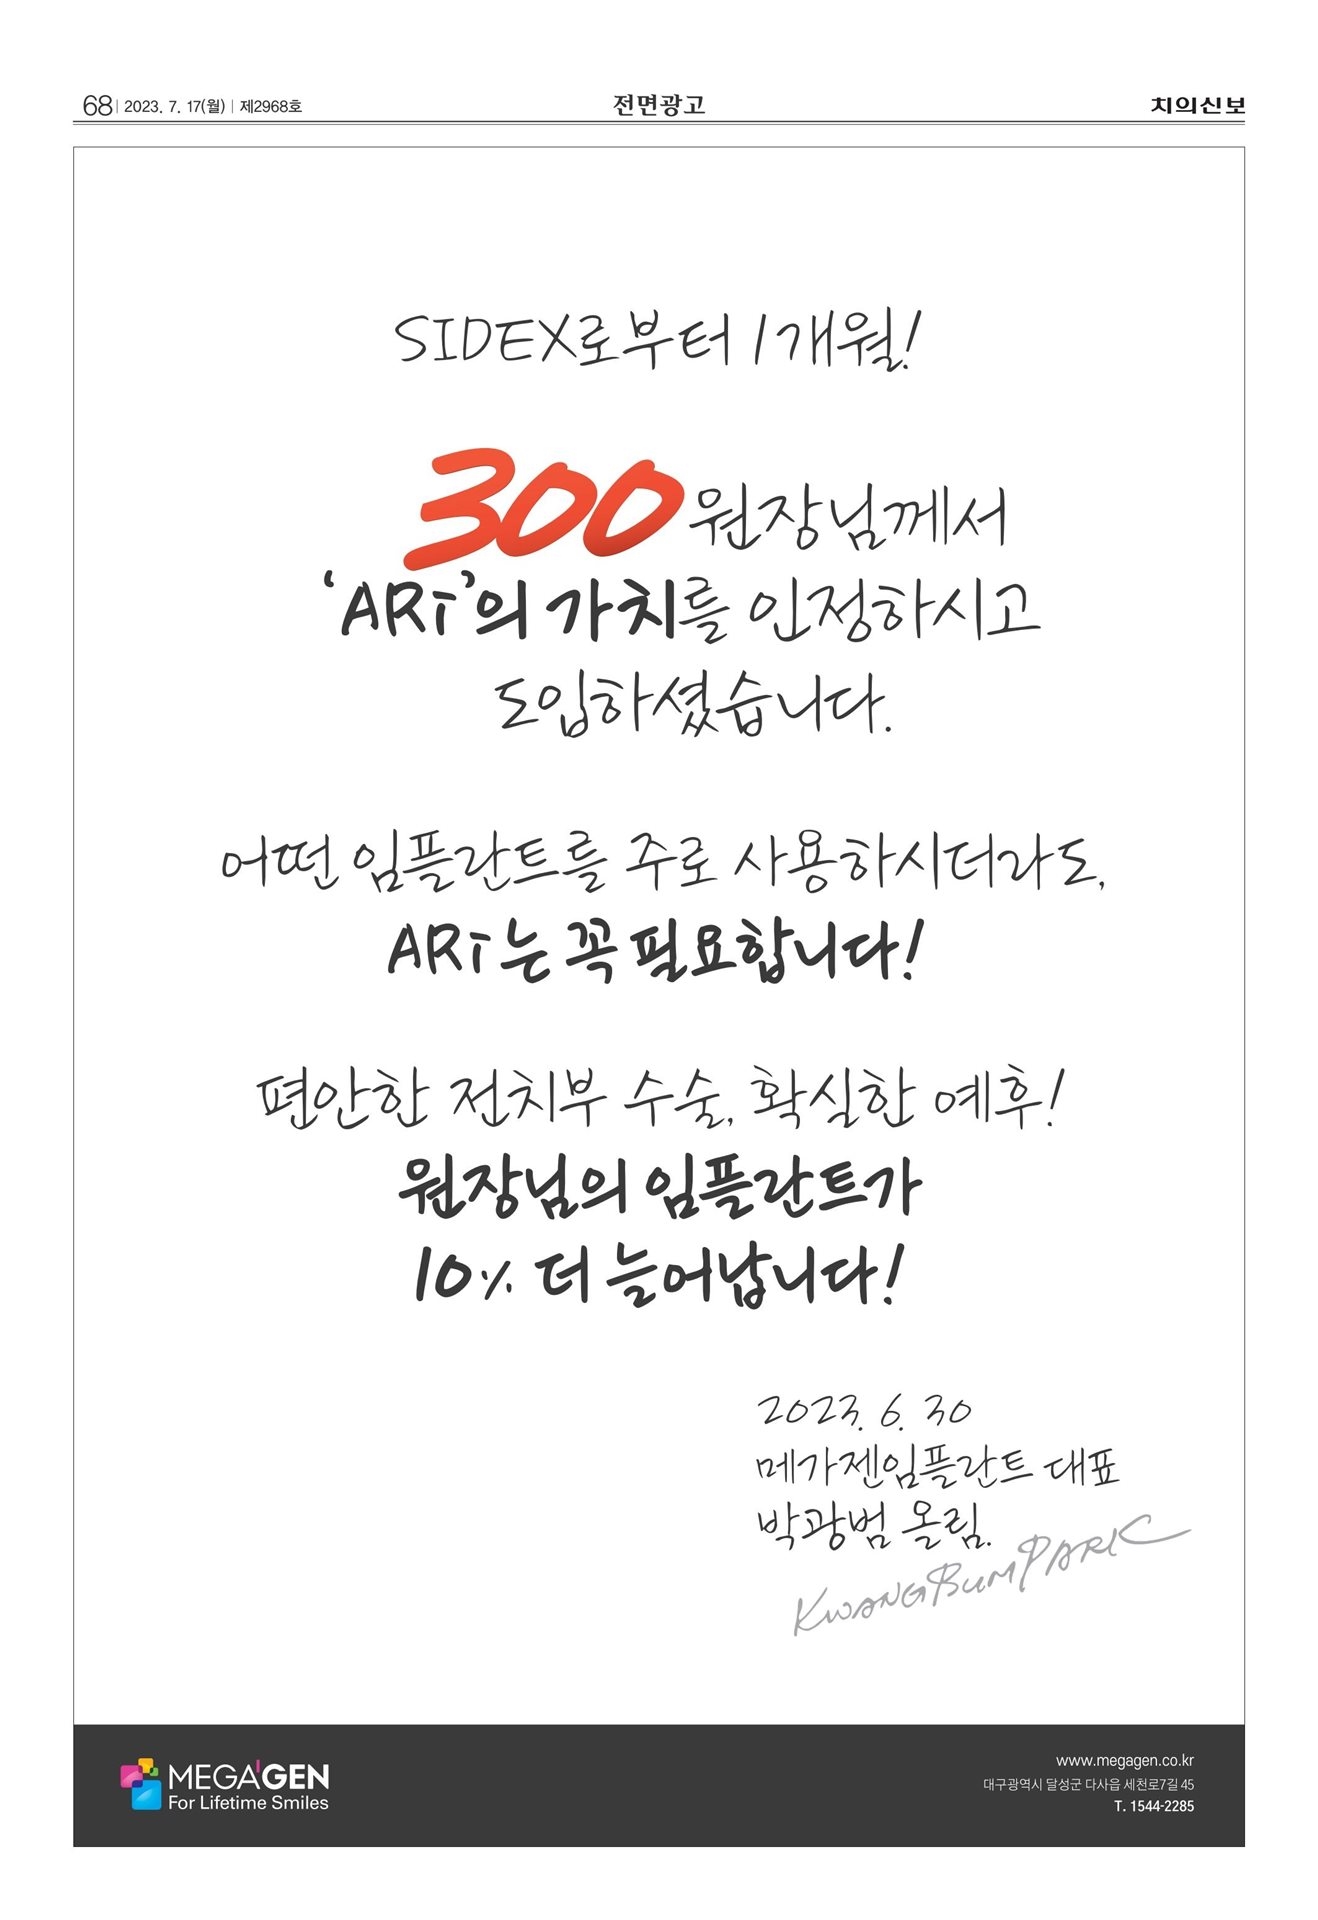 68 | 2023. 7. 17(월) | 제2968호
전면광고
치의신보
SIDEX로부터 1개월!
300 원장님께서
‘ARi’의 가치를 인정하시고
도입하셨습니다.
어떤 임플란트를 주로 사용하시더라도,
ARi는 꼭 필요합니다!
편안한 전치부 수술, 확실한 예후!
원장님의 임플란트가
10% 더 늘어납니다!
2023. 6. 30
메가젠임플란트 대표
박광범 올림.
KWANGBUM PARK
MEGA'GEN
For Lifetime Smiles
www.megagen.co.kr
대구광역시 달성군 다사읍 세천로7길 45
T. 1544-2285